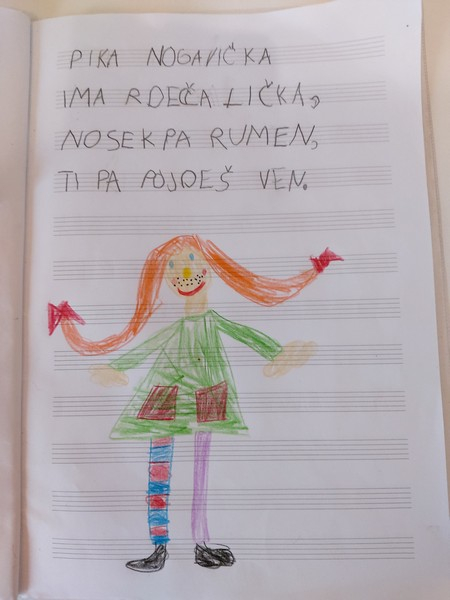 PIKA NOGAVIČKA
IMA RDEČA LIČKA,
NOSEK PA RUMEN,
TI PA POJDEŠ VEN.